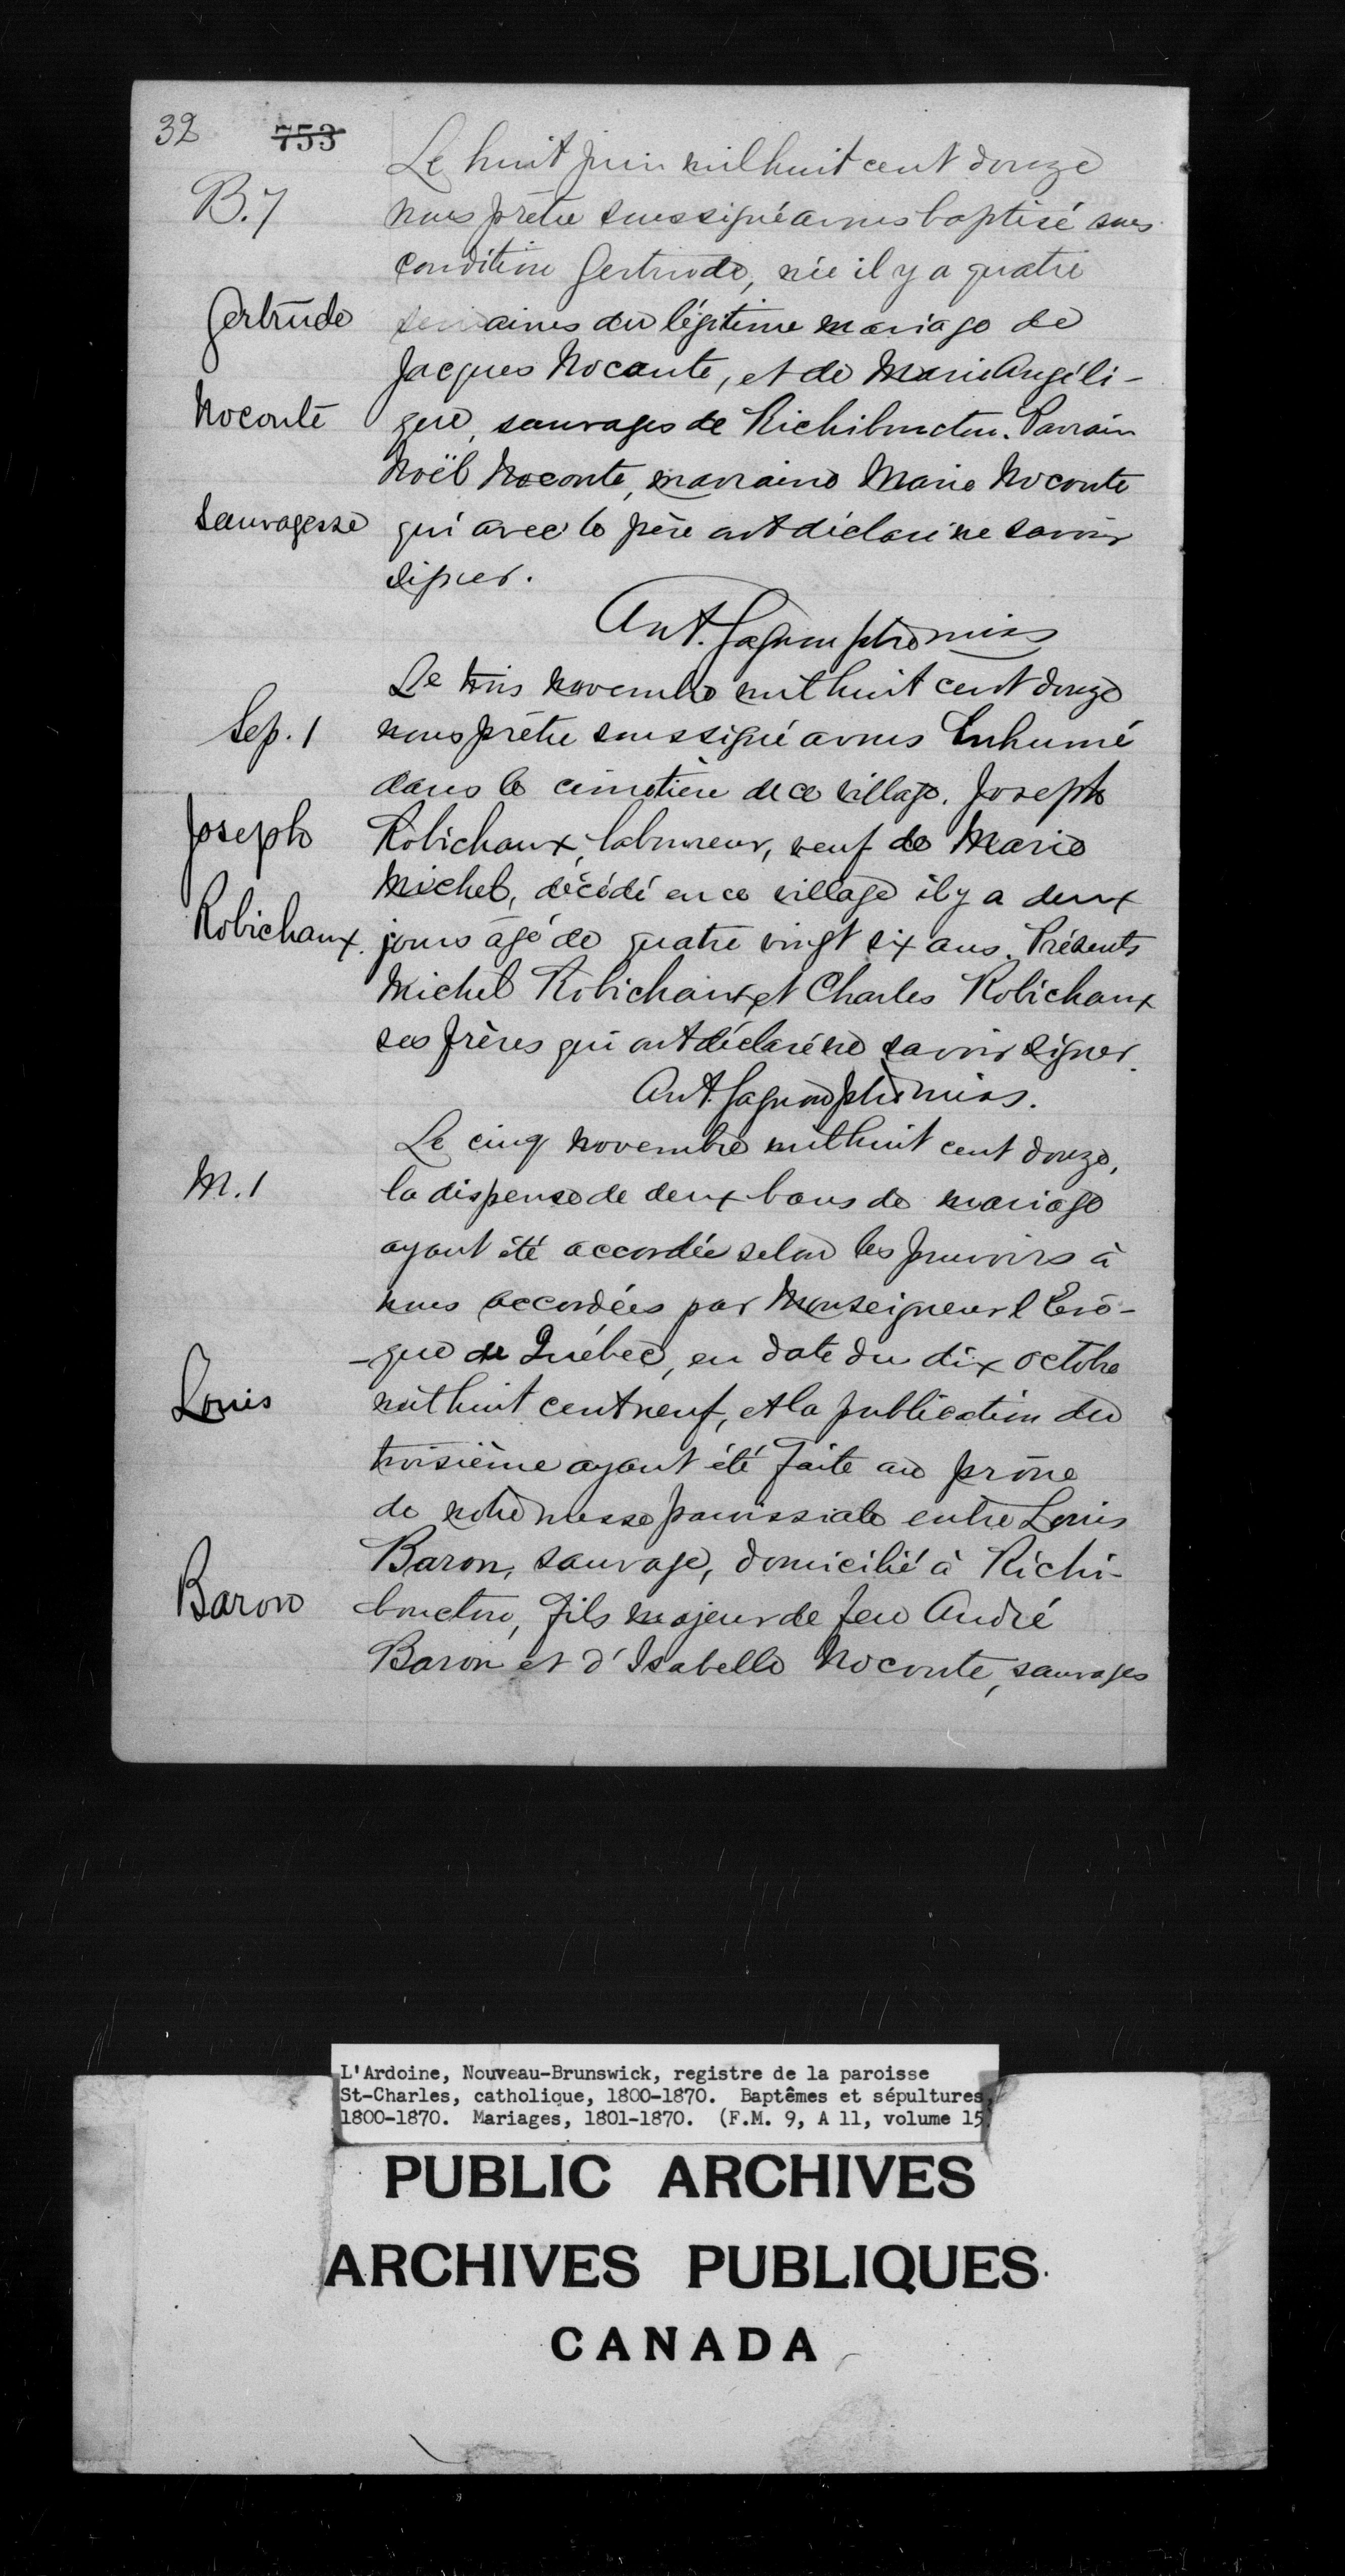 32 753
B. 7
Gertrude
Noconte
Sauvagesse
Le huit juin mil huit cent douze
nous prêtre soussigné avons baptisé sous
condition Gertrude, née il y a quatre
semaines du légitime mariage de
Jacques Noconte, et de Marie Angéli-
que, sauvages de Richibouctou. Parrain
Noël Noconte, marraine Marie Noconte
qui avec le père ont déclaré ne savoir
signer.
Ant. Gagnon ptre miss
Sep. 1
Joseph
Robichaux.
Le trois novembre mil huit cent douze
nous prêtre soussigné avons Inhumé
dans le cimetière de ce village, Joseph
Robichaux, laboureur, veuf de Marie
Michel, décédé en ce village il y a deux
jours âgé de quatre vingt six ans. Présents
Michel Robichaux et Charles Robichaux
ses frères qui ont déclaré ne savoir signer.
Ant. Gagnon ptre miss.
M. 1
Louis
Baron
Le cinq novembre mil huit cent douze,
la dispense de deux bans de mariage
ayant été accordée selon les pouvoirs à
nous accordées par Monseigneur l'Evê-
-que de Québec, en date du dix octobre
mil huit cent neuf, et la publication du
troisième ayant été faite au prône
de notre messe paroissiale entre Louis
Baron, sauvage, domicilié à Richi-
bouctou, fils majeur de feu André
Baron et d'Isabelle Noconte, sauvages
L'Ardoine, Nouveau-Brunswick, registre de la paroisse
St-Charles, catholique, 1800-1870. Baptêmes et sépultures,
1800-1870. Mariages, 1801-1870. (F.M. 9, A 11, volume 15)
PUBLIC ARCHIVES
ARCHIVES PUBLIQUES
CANADA